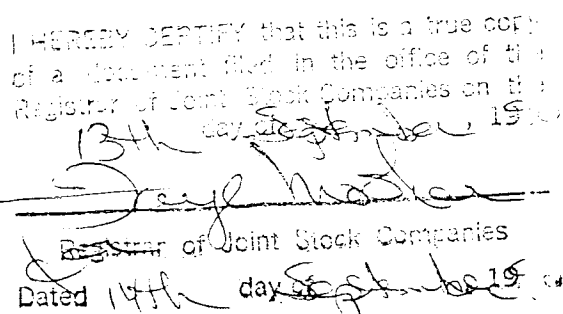 I HEREBY CERTIFY that this is a true copy
of a document filed in the office of the
Registrar of Joint Stock Companies on the
13th day of September 19
Registrar of Joint Stock Companies
Dated 14th day of September 19